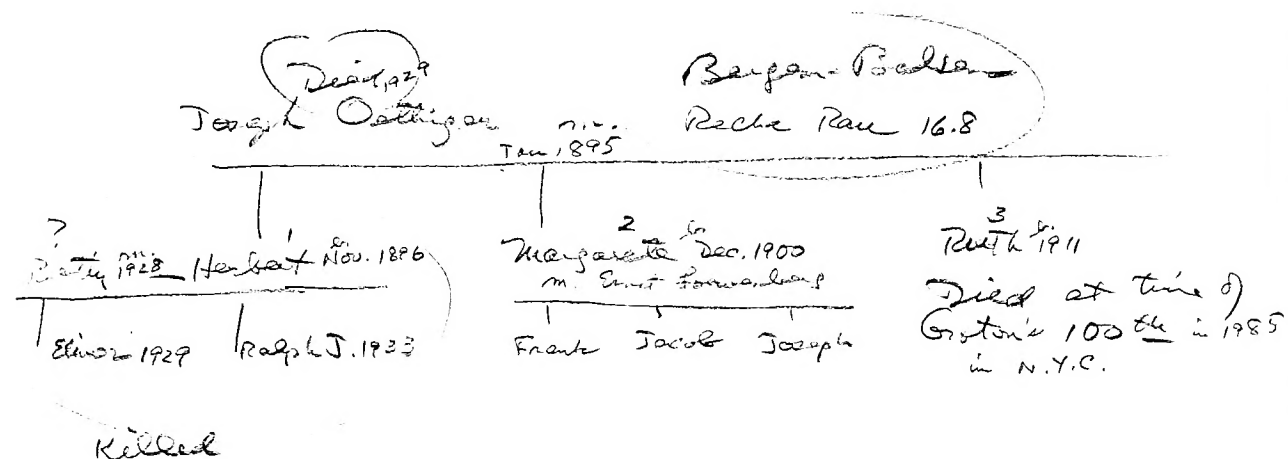 Died, 1929
Bergen-Baelsen
Joseph Oettinger m. Recha Rau 16.8
Jan 1895
?
Betty m. 1928 Herbert 1 b. Nov. 1896
2
Margarete b. Dec. 1900
m. Ernst
3
Ruth b. 1911
Elinor 1929 Ralph J. 1933
Frank Jacob Joseph
Died at time of
Groton's 100th in 1985
in N.Y.C.
Killed